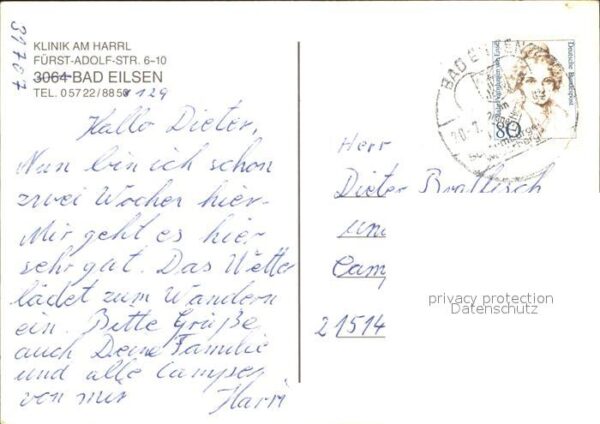 31707
KLINIK AM HARRL
FÜRST-ADOLF-STR. 6-10
3064 BAD EILSEN
TEL. 05722/885 129
Hallo Dieter,
Nun bin ich schon
zwei Wochen hier.
Mir geht es hier
sehr gut. Das Wetter
lädet zum Wandern
ein. Bitte Grüße
auch Deine Familie
und alle Camper
von mir Harri
BAD EILSEN
Deutsche Bundespost
80
Herr
Dieter
und
Camp
21514
privacy protection
Datenschutz